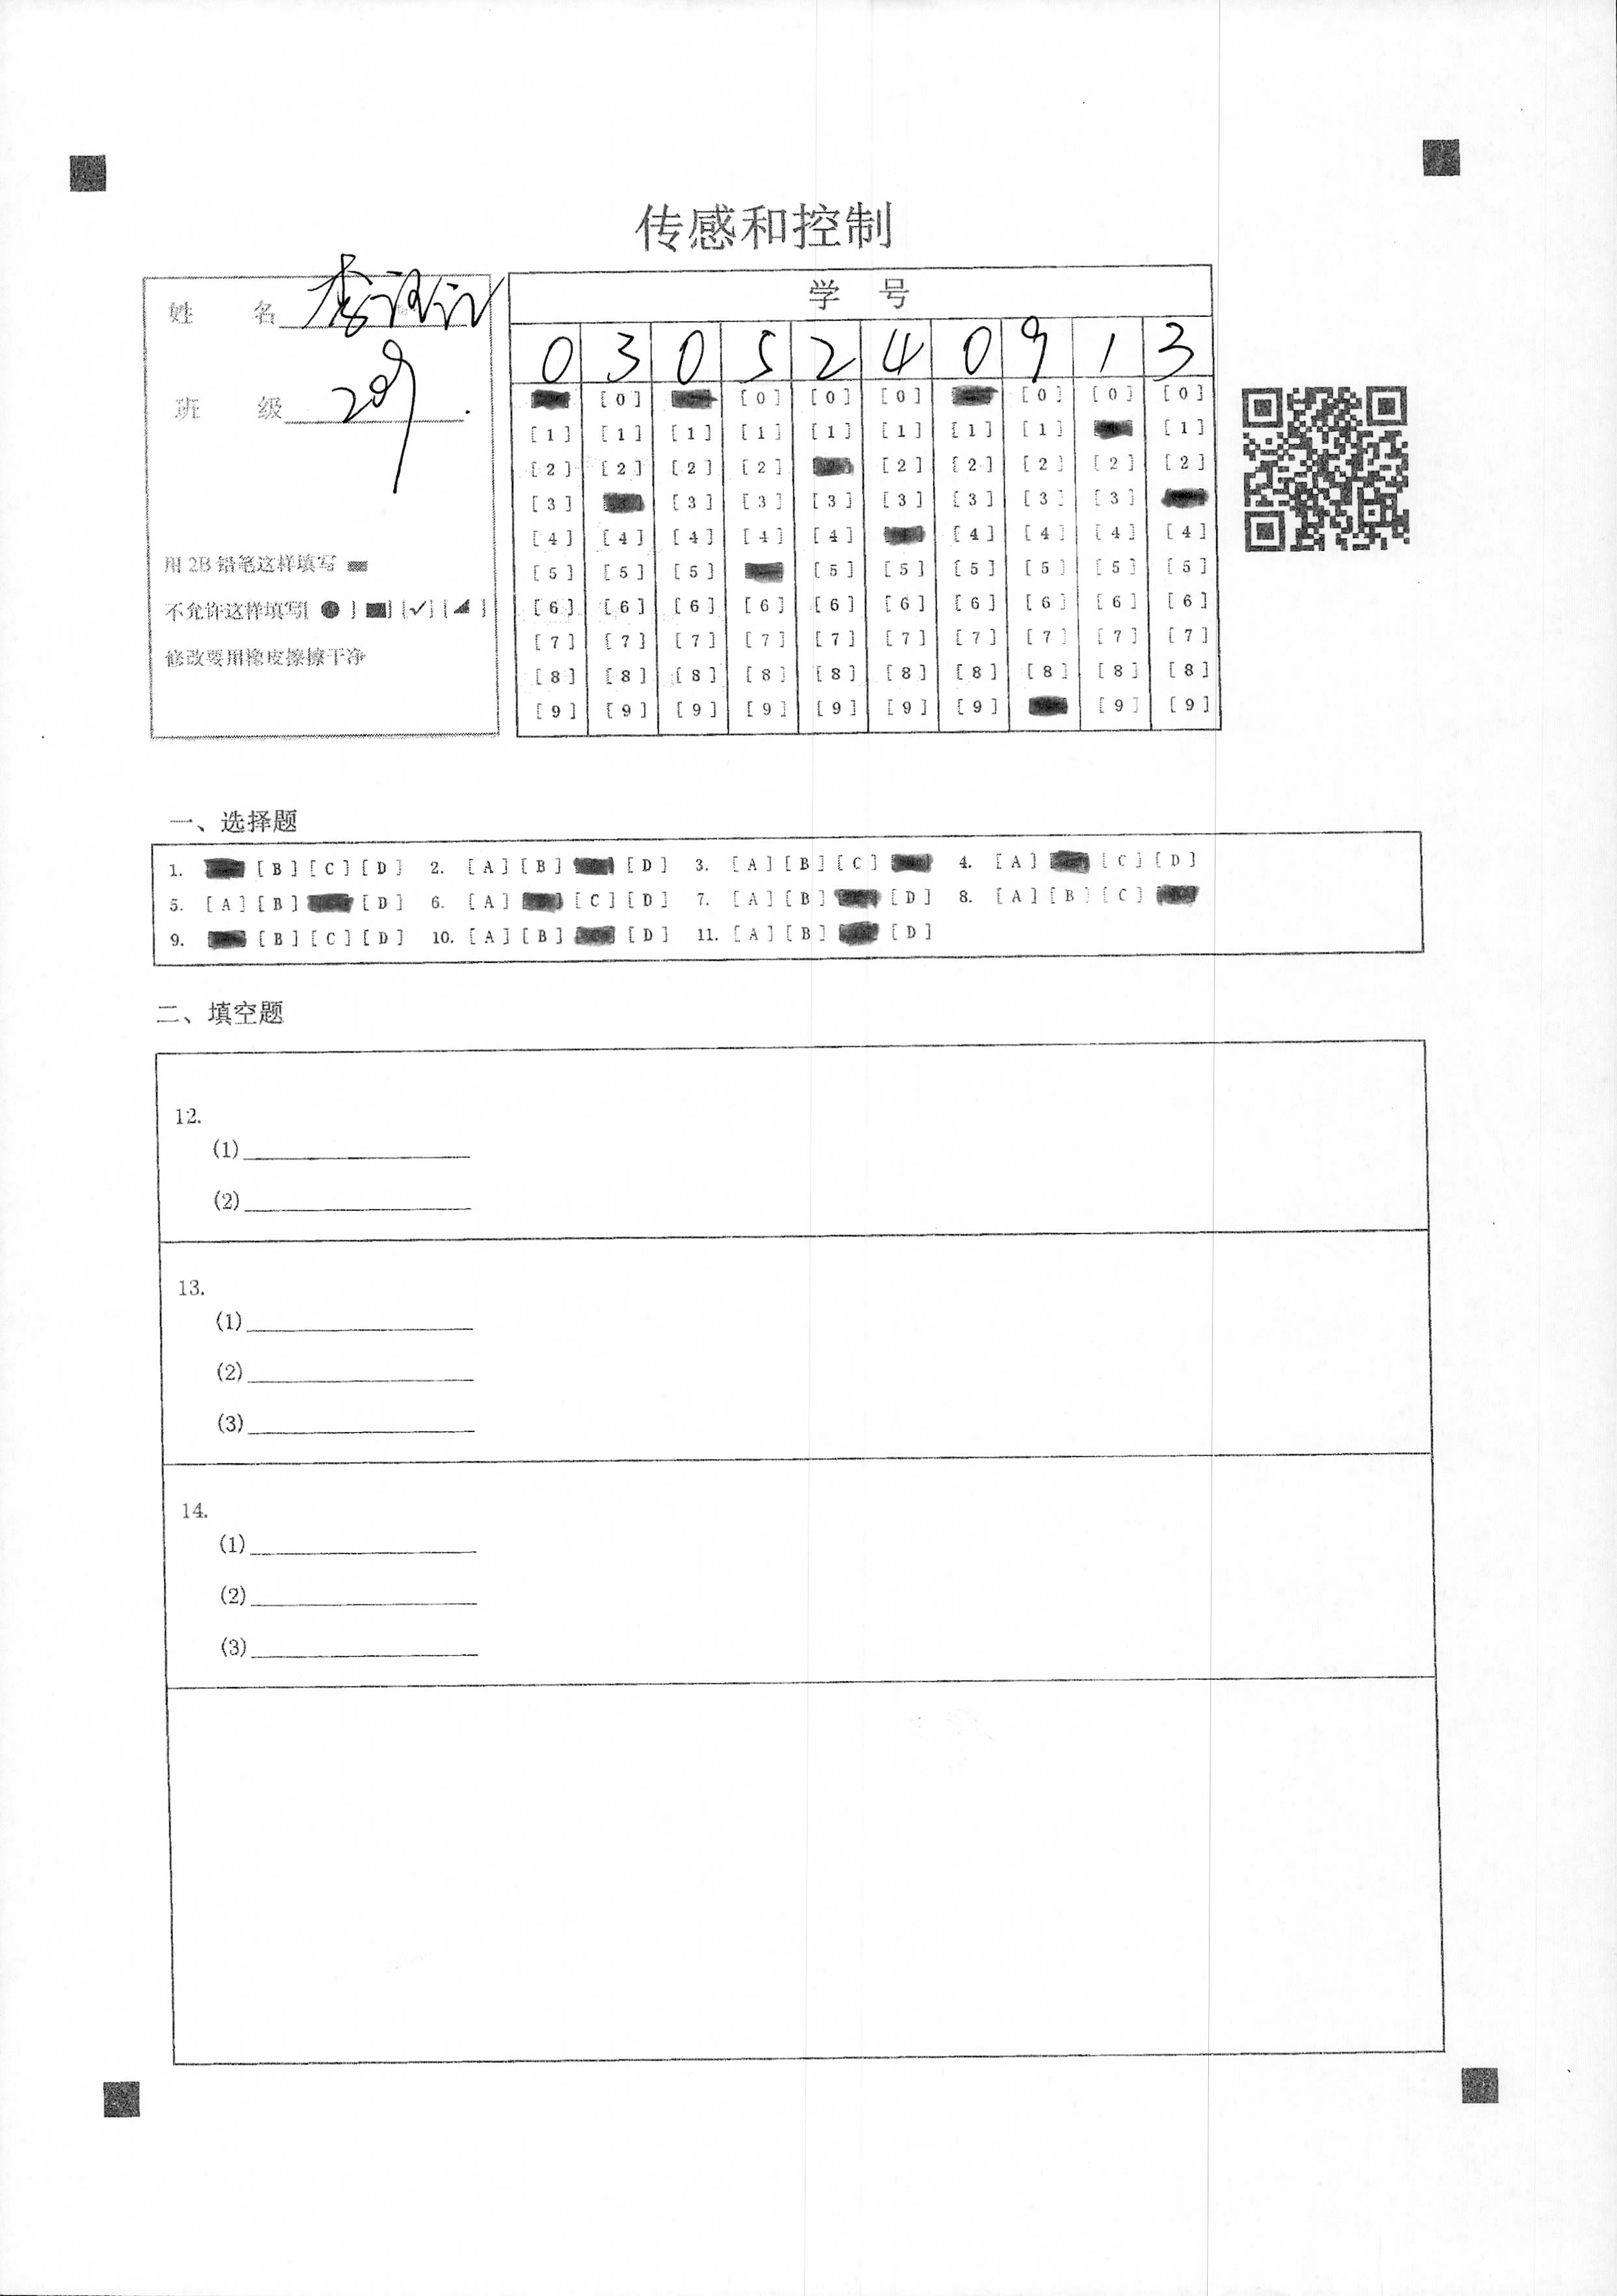 传感和控制
姓 名
班 级 209
用 2B 铅笔这样填写
不允许这样填写[ ● ] [■] [✓] [◢ ]
修改要用橡皮擦擦干净
学 号
0 3 0 5 2 4 0 9 1 3
[0] [0] [0] [0] [0] [0] [0]
[1] [1] [1] [1] [1] [1] [1] [1] [1]
[2] [2] [2] [2] [2] [2] [2] [2] [2]
[3] [3] [3] [3] [3] [3] [3] [3]
[4] [4] [4] [4] [4] [4] [4] [4] [4]
[5] [5] [5] [5] [5] [5] [5] [5] [5]
[6] [6] [6] [6] [6] [6] [6] [6] [6] [6]
[7] [7] [7] [7] [7] [7] [7] [7] [7] [7]
[8] [8] [8] [8] [8] [8] [8] [8] [8] [8]
[9] [9] [9] [9] [9] [9] [9] [9] [9]
一、选择题
1. [B] [C] [D] 2. [A] [B] [D] 3. [A] [B] [C] 4. [A] [C] [D]
5. [A] [B] [D] 6. [A] [C] [D] 7. [A] [B] [D] 8. [A] [B] [C]
9. [B] [C] [D] 10. [A] [B] [D] 11. [A] [B] [D]
二、填空题
12.
(1)
(2)
13.
(1)
(2)
(3)
14.
(1)
(2)
(3)